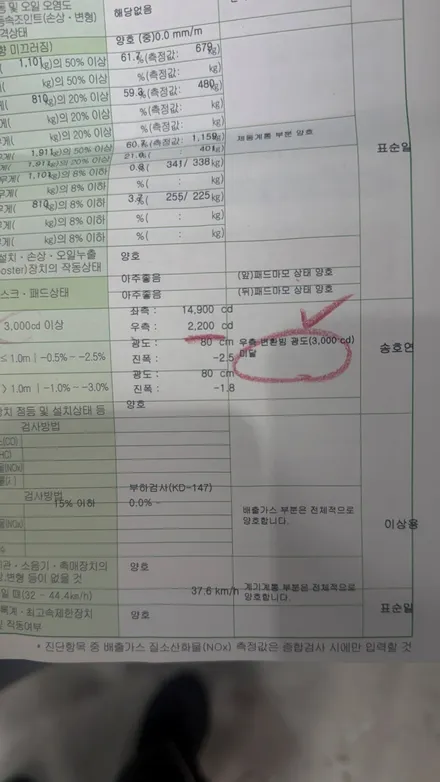 등 및 오일 오염도
해당없음
등속조인트(손상・변형)
격상태
양호 (중)0.0 mm/m
향 미끄러짐)
1,101kg)의 50% 이상
61.7 %(측정값: 679kg)
kg)의 50% 이상
%(측정값: kg)
게( 810kg)의 20% 이상
59.9 %(측정값: 480kg)
게( kg)의 20% 이상
%(측정값: kg)
무게( 1,911kg)의 50% 이상
60.7 %(측정값: 1,159kg)
제동계통 부분 양호
표순일
무게( 1,911kg)의 20% 이상
21.0%( 401kg)
무게( 1,101kg)의 8% 이하
0.8( 341/ 338kg)
무게( kg)의 8% 이하
%( : kg)
무게( 810kg)의 8% 이하
3.7( 255/ 225kg)
무게( kg)의 8% 이하
%( : kg)
설치・손상・오일누출
양호
oster)장치의 작동상태
아주좋음
(앞)패드마모 상태 양호
스크・패드상태
아주좋음
(뒤)패드마모 상태 양호
3,000cd 이상
좌측 : 14,900 cd
우측 : 2,200 cd
≤ 1.0m | -0.5% ~ -2.5%
광도 : 80 cm
우측 변환빔 광도(3,000 cd)
미달
송호연
진폭 : -2.5
> 1.0m | -1.0% ~ -3.0%
광도 : 80 cm
진폭 : -1.8
장치 점등 및 설치상태 등
양호
검사방법
(CO)
HC)
물(NOx)
률(λ)
검사방법
부하검사(KD-147)
15% 이하
0.0% -
배출가스 부분은 전체적으로
양호합니다.
이상용
물(NOx)
기관・소음기・촉매장치의
양호
변형 등이 없을 것
일 때(32 ~ 44.4km/h)
37.6 km/h
계기계통 부분은 전체적으로
양호합니다.
표순일
록계・최고속제한장치
양호
및 작동여부
* 진단항목 중 배출가스 질소산화물(NOx) 측정값은 종합검사 시에만 입력할 것